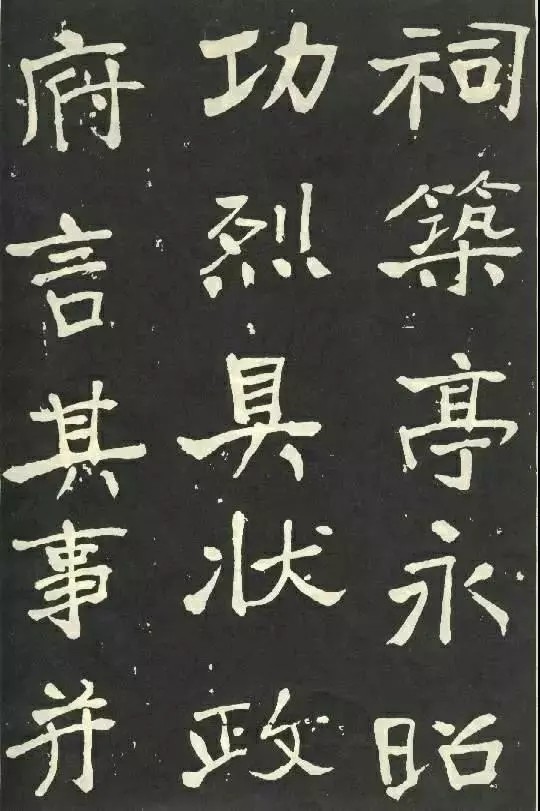 祠築亭永昭
功烈具状政
府言其事并